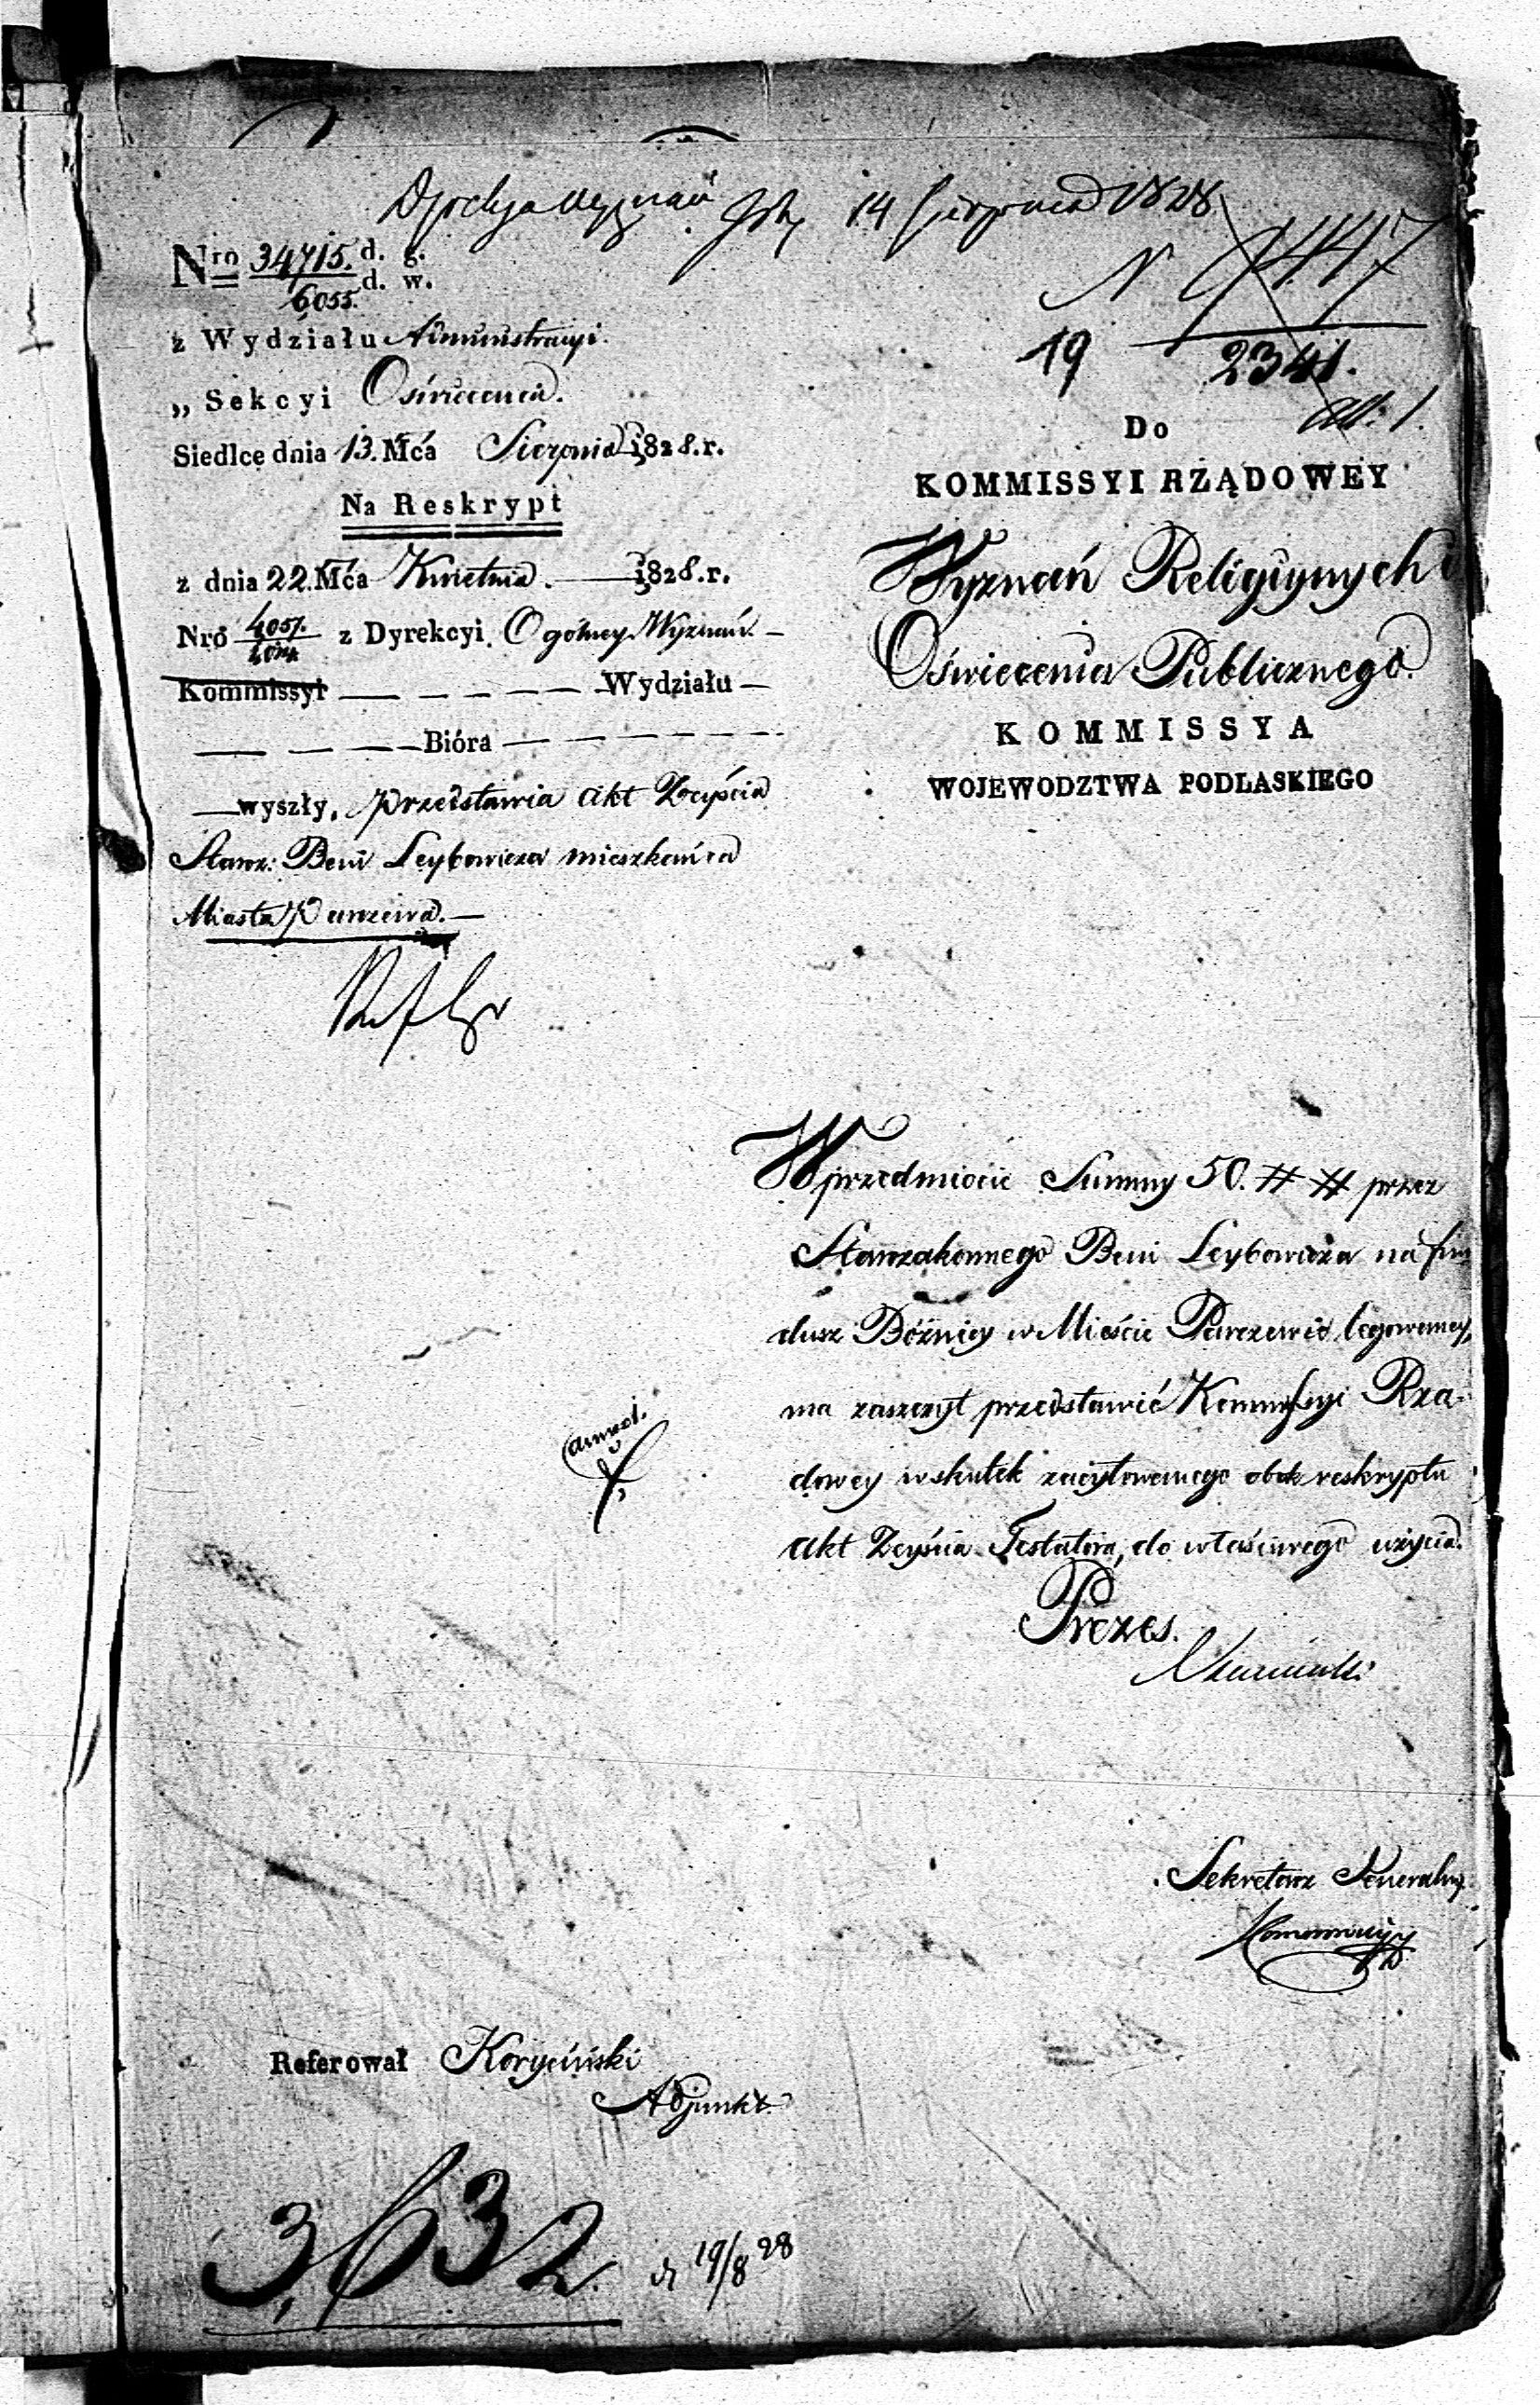 14 Sierpnia 1828
Nro 34715. d. g.
6055. d. w.
z Wydziału Administracyi.
„ Sekcyi Oświecenia.
Siedlce dnia 13. Mca Sierpnia 1828.r.
Na Reskrypt
z dnia 22. Mca Kwietnia. 1828.r.
Nro 4057. z Dyrekcyi Ogólney Wyznań.
Kommissyi Wydziału
Bióra
wyszły, przedstawia akt Zeyścia
Staroz: Beni Leybowicza mieszkańca
Miasta Parczewa.
N 7447
19 2341.
all. 1.
Do
KOMMISSYI RZĄDOWEY
Wyznań Religiynych i
Oświecenia Publicznego.
KOMMISSYA
WOJEWODZTWA PODLASKIEGO
W przedmiocie Summy 50. # # przez
Starozakonnego Beni Leybowicza na fun
dusz Bóżnicy w Mieście Parczewie legowaney,
ma zaszczyt przedstawić Kommissyi Rzą-
dowey w skutek zacytowanego obok reskryptu
akt Zeyścia Testatora, do właściwego użycia.
Prezes.
Sekretarz Generalny
Referował Koryciński
Adjunkt.
3,632.
d 19/8 28